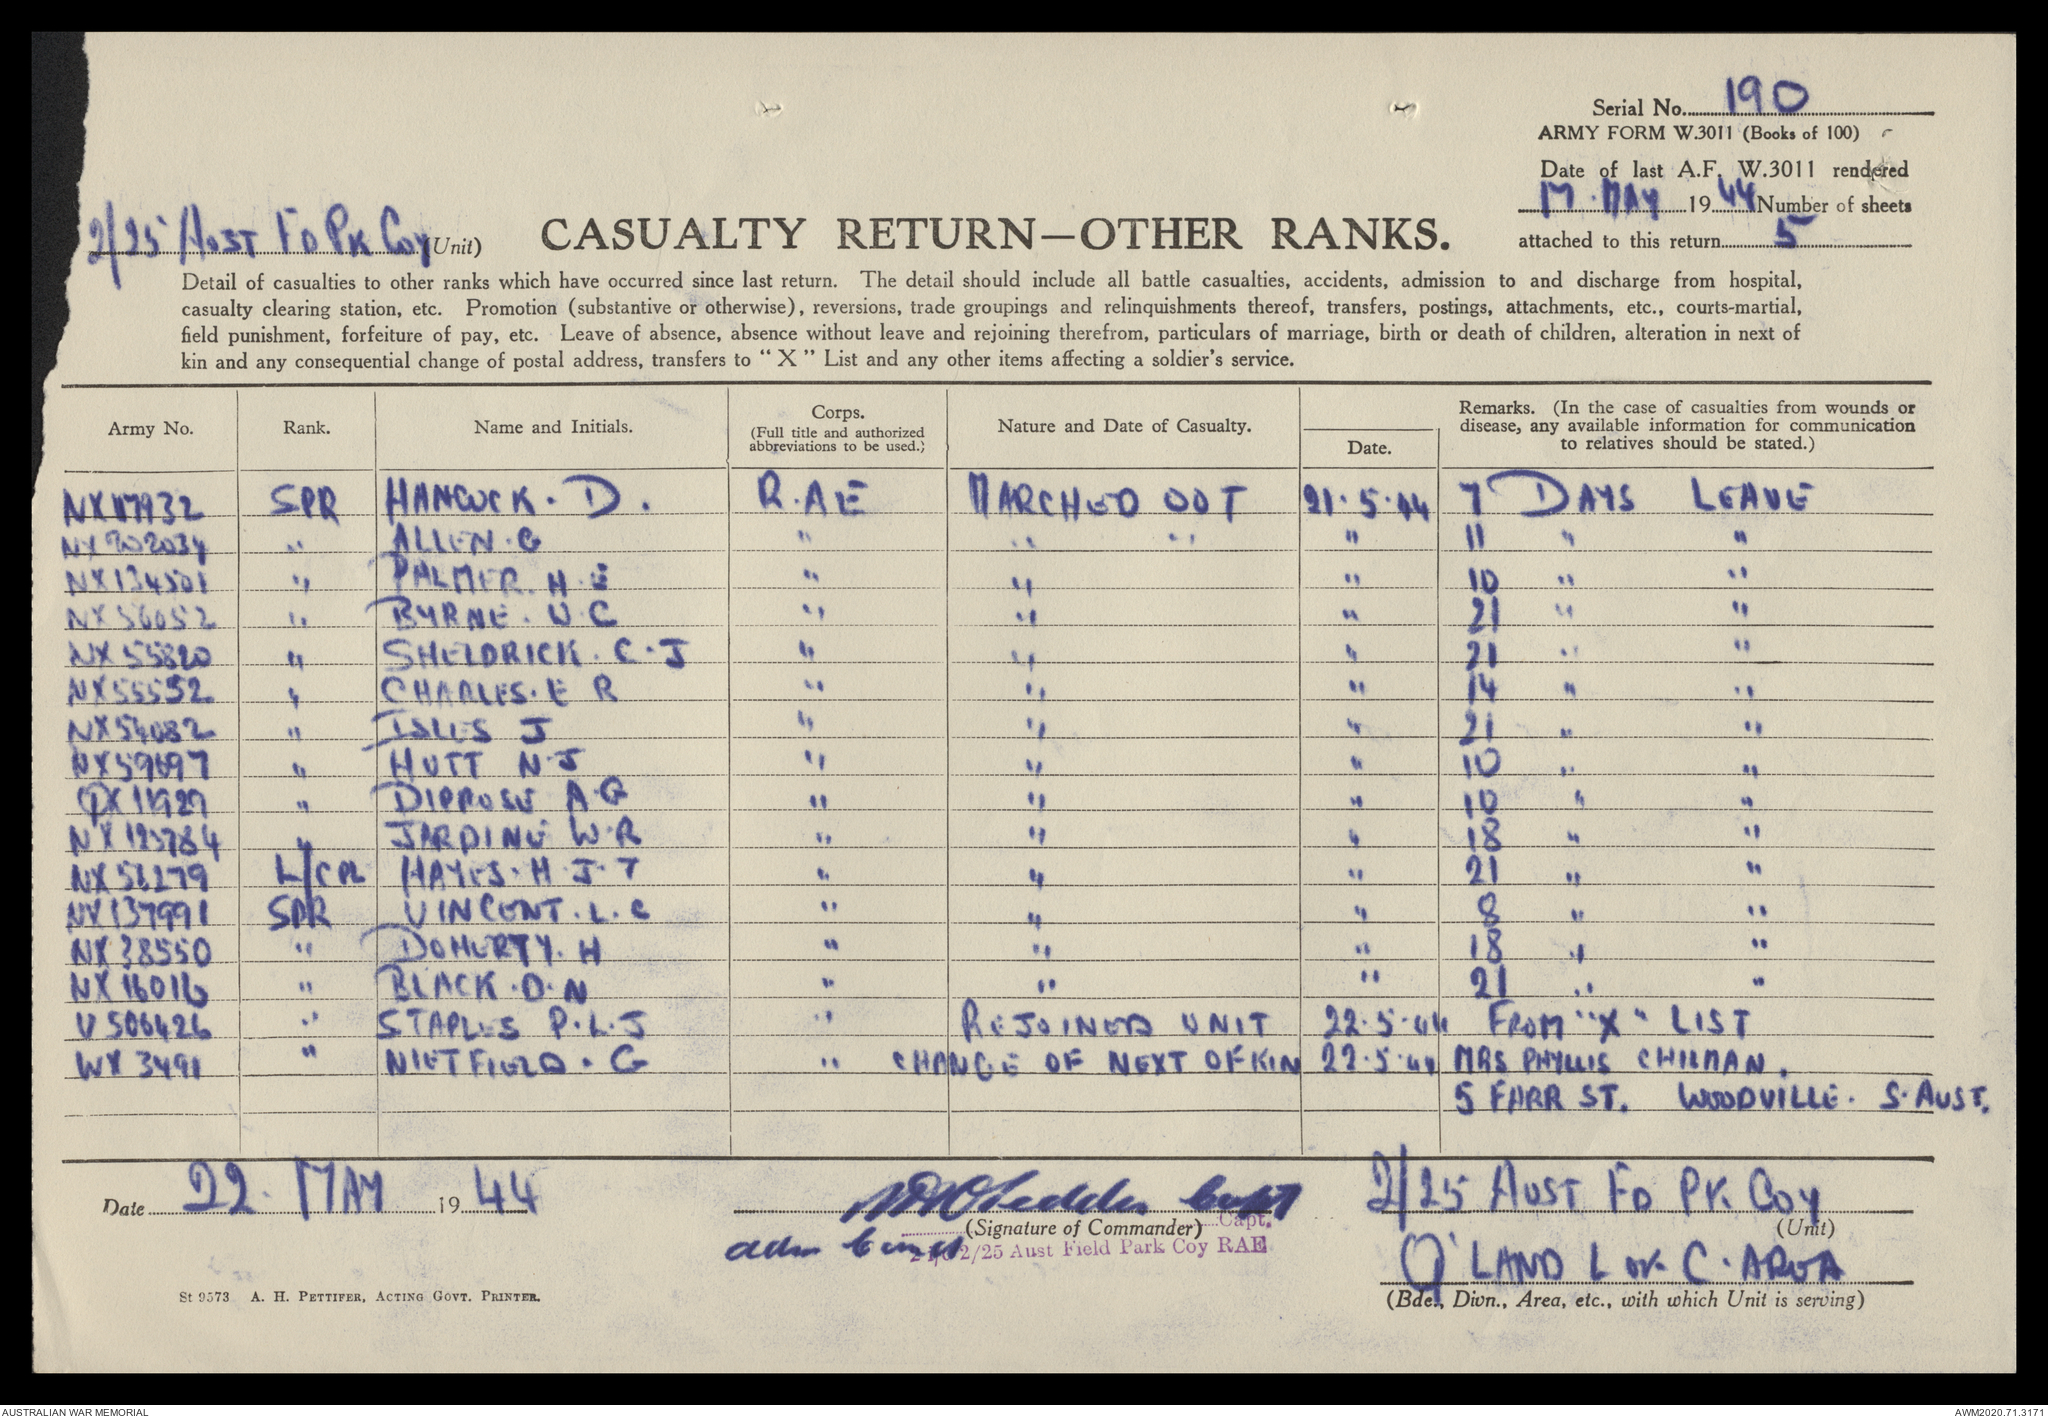 Serial No. 190
ARMY FORM W.3011 (Books of 100)
Date of last A.F. W.3011 rendered
17. MAY 19 44 Number of sheets
attached to this return 5
2/25 AUST FD PK COY (Unit)
CASUALTY RETURN—OTHER RANKS.
Detail of casualties to other ranks which have occurred since last return. The detail should include all battle casualties, accidents, admission to and discharge from hospital,
casualty clearing station, etc. Promotion (substantive or otherwise), reversions, trade groupings and relinquishments thereof, transfers, postings, attachments, etc., courts-martial,
field punishment, forfeiture of pay, etc. Leave of absence, absence without leave and rejoining therefrom, particulars of marriage, birth or death of children, alteration in next of
kin and any consequential change of postal address, transfers to "X" List and any other items affecting a soldier's service.
Army No. Rank. Name and Initials. Corps. (Full title and authorized abbreviations to be used.) Nature and Date of Casualty. Date. Remarks. (In the case of casualties from wounds or disease, any available information for communication to relatives should be stated.)
SPR HANCOCK. D. R.A.E MARCHED OUT 21.5.44 7 DAYS LEAVE
NX 202034 " ALLEN. G " " " " 11 " "
NX 134501 " PALMER. H. E " " " 10 " "
NX 56052 " BYRNE. V. C " " " 21 " "
NX 55820 " SHELDRICK. C. J " " " 21 " "
NX 55552 " CHARLES. E R " " " 14 " "
NX 54082 " ISLES J " " " 21 " "
NX 59697 " HUTT N. J " " " 10 " "
" DIPROSE A. G " " " 10 " "
NX 123784 " JARDINE W. R " " " 18 " "
NX 53279 L/CPL HAYES. H. J. T " " " 21 " "
NX 137991 SPR VINCENT. L. C " " " 8 " "
NX 38550 " DOHERTY. H " " " 18 " "
NX 16016 " BLACK. D. N " " " 21 " "
V 506426 " STAPLES P. L. J " REJOINED UNIT 22.5.44 FROM "X" LIST
WX 3491 " NIETFIELD. G " CHANGE OF NEXT OF KIN 22.5.44 MRS PHYLLIS CHILMAN.
5 FARR ST. WOODVILLE. S. AUST.
Date 22. MAY 19 44
Capt
(Signature of Commander) Capt.
2/25 Aust Field Park Coy RAE
2/25 AUST FD PK COY
(Unit)
Q'LAND L OF C. AREA
(Bde., Divn., Area, etc., with which Unit is serving)
St 9573 A. H. PETTIFER, ACTING GOVT. PRINTER.
AUSTRALIAN WAR MEMORIAL
AWM2020.71.3171